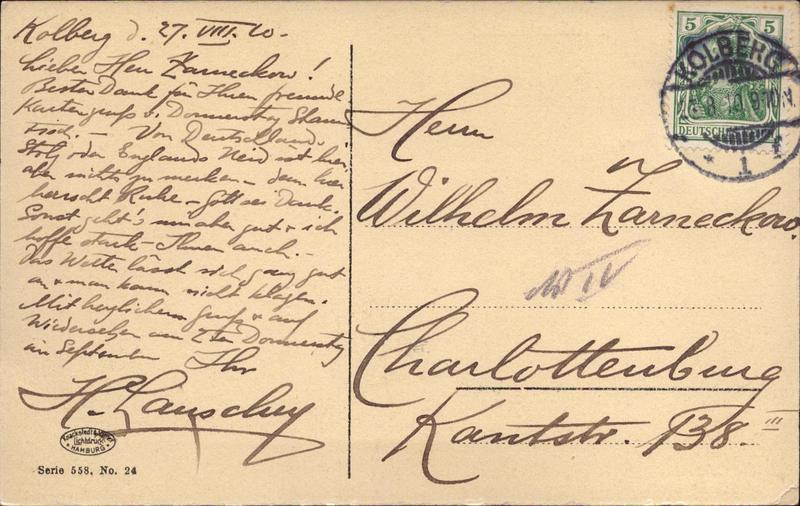 Kolberg d. 27. VIII. 10.
Lieber Herr Zarneckow!
Besten Dank für Ihren freundl.
Kartengruß v. Donnerstag Stamm-
tisch. – Von Deutschlands
Stolz oder Englands Neid ist hier
aber nichts zu merken – denn hier
herrscht Ruhe – Gott sei Dank.
Sonst geht's mir aber gut + ich
hoffe stark – Ihnen auch. –
Das Wetter lässt sich ganz gut
an + man kann nicht klagen.
Mit herzlichem Gruß + auf
Wiedersehen am 2ten Donnerstag
im September Ihr
H.
HAMBURG
Lichtdruck
Serie 558, No. 24
5 5
DEUTSCHES
KOLBERG
* 1 f
Herrn
Wilhelm Zarneckow.
IV
Charlottenburg
Kantstr. 138. III